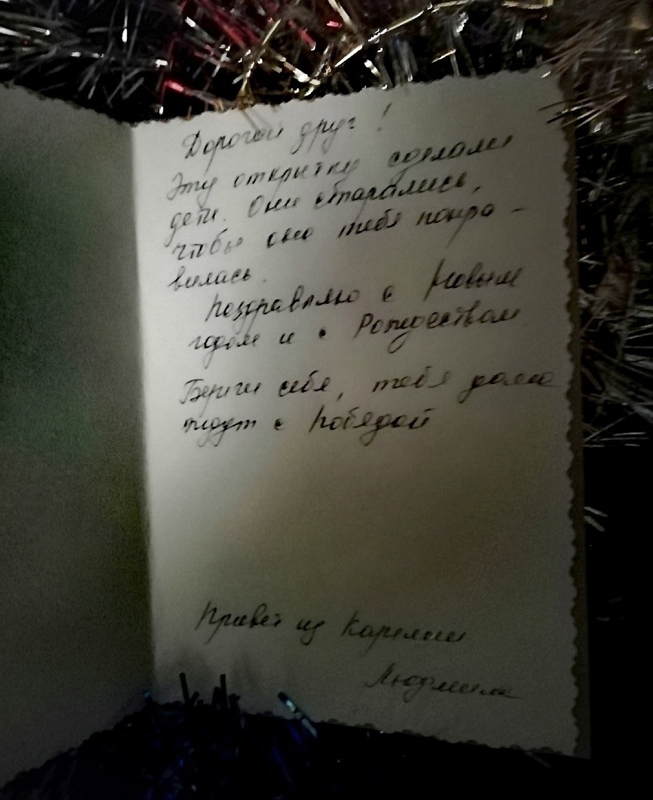 Дорогой друг!
Эту открытку сделали
дети. Они старались,
чтобы она тебе понра-
вилась.
Поздравляю с Новым
годом и с Рождеством
Береги себя, тебя дома
ждут с победой
Привет из Карелии
Людмила